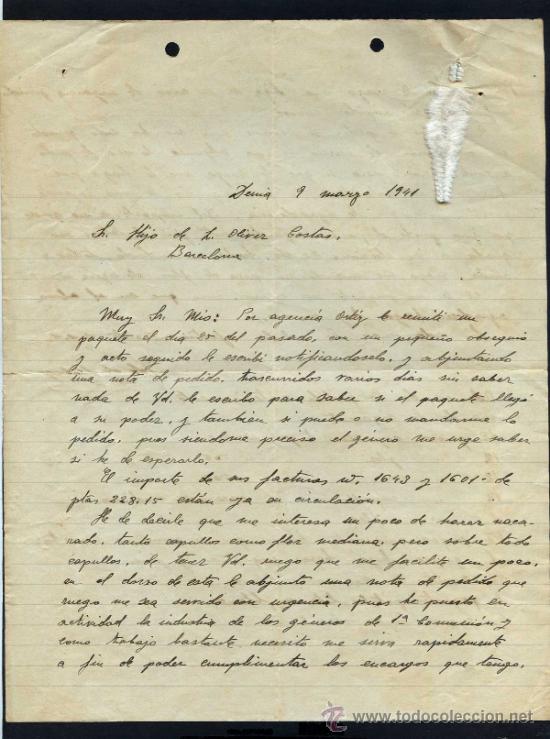 Denia 9 marzo 1941
Sr. Hijo de L. Oliver Costas.
Barcelona
Muy Sr. Mio: Por agencia Ortiz le remiti un
paquete el dia 25 del pasado, con un pequeño obsequio
y acto seguido le escribi notificandoselo, y adjuntando
una nota de pedido, trascurridos varios dias sin saber
nada de Vd. le escribo para saber si el paquete llegó
a su poder, y tambien si puede o no mandarme lo
pedido, pues siendome preciso el género me urge saber
si he de esperarlo.
El importe de sus facturas nº. 1643 y 1601 de
ptas 228.15 están ya en circulación.
He de decirle que me interesa un poco de azahar naca-
rado, tanto capullos como flor mediana, pero sobre todo
capullos, de tener Vd. ruego que me facilite un poco,
en el dorso de esta le adjunto una nota de pedido que
ruego me sea servido con urgencia, pues he puesto en
actividad la industria de los géneros de 1ª Comunión y
como trabajo bastante, necesito me sirva rapidamente
a fin de poder cumplimentar los encargos que tengo.
www.todocoleccion.net